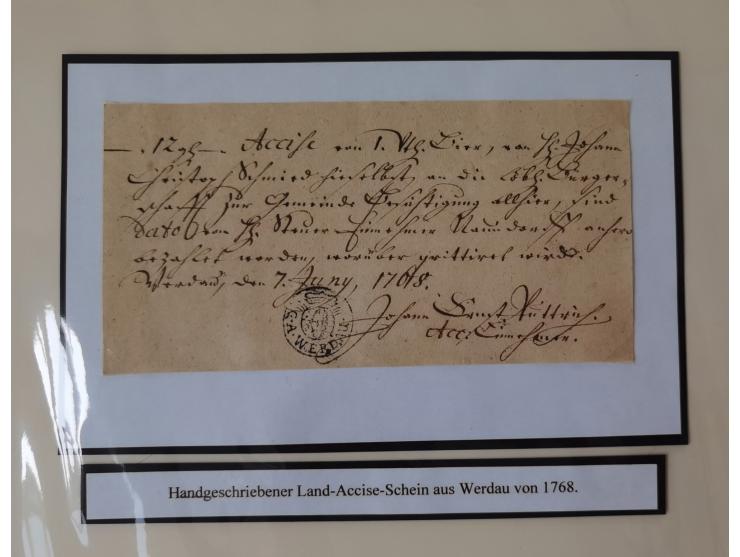 — . 12 gl. — Accise von 1. Vß. Bier, von H. Johann
Christoph Schmied hieselbst, an die Löbl. Bürger-
schafft zur Gemeinde Besichtigung allhier, sind
dato von H. Steuer-Einnehmer Naumdorff anhero
bezahlet worden, worüber quittiret wird.
Werdau, den 7. Juny, 1768.
Johann Ernst
Acc: Einnehmer.
G.A. WERDAU
Handgeschriebener Land-Accise-Schein aus Werdau von 1768.